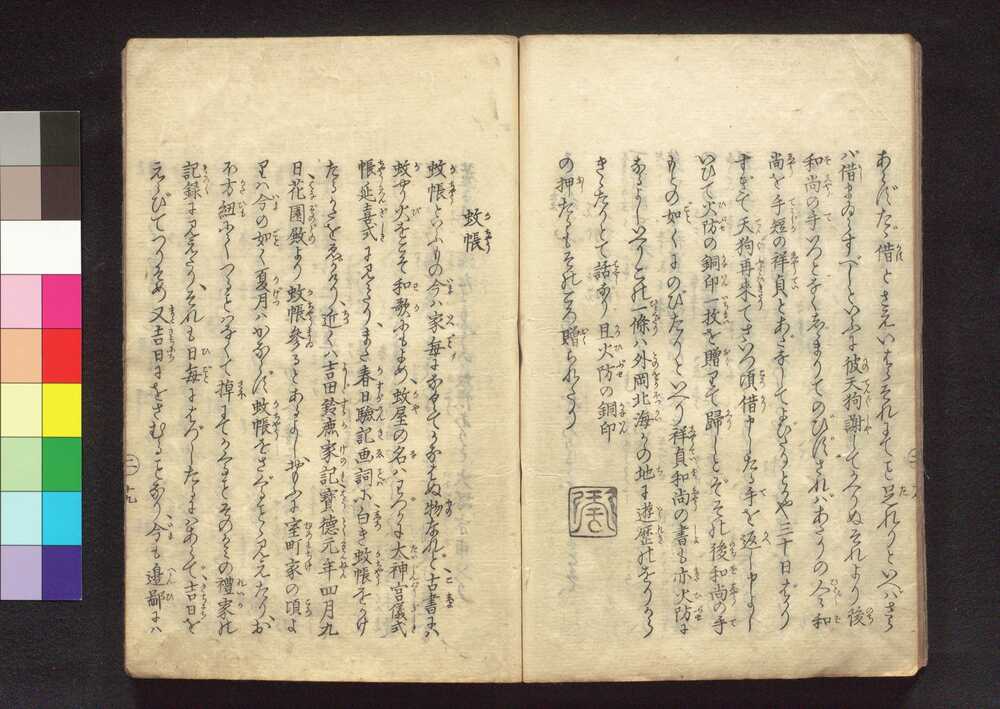 あらずたゞ借とさえいはゞそれにてこと足れりといへばさら
ば借まゐらすべしといふに彼天狗謝してさりぬそれより後
和尚の手いつとなくちゞまりてのびずされバあたりの人々和
尚を手短の祥貞とあだ名してよびけるとかや三十日ばかり
すぎて天狗再来てさいつ頃借申したる手を返し申よし
いひて火防の銅印一枚を贈りて歸りしとぞその後和尚の手
もとの如くにのびたりといへり祥貞和尚の書も亦火防に
なるよしいへりこの一條ハ外岡北海かの地に遊歴のをりから
きゝたりとて話なり且火防の銅印
の押たるもそのころ贈られたり
蚊帳
蚊帳といふもの今ハ家毎になくてかなはぬ物なれど古書にハ
蚊やり火をこそ和歌にもよめ蚊屋の名ハわづかに大神宮儀式
帳延喜式に見えたりまた春日驗記画詞に白き蚊帳をかけ
たるかたをゑがけり近くハ吉田鈴鹿家記寳德元年四月九
日花園殿より蚊帳参るとあるよしおもふに室町家の頃よ
りハ今の如く夏月ハかならず蚊帳をさぐると見えたりお
不方紐にてつるとハなくて掉にてかくるそのかみの禮家の
記録に見えたりそれも日毎にはづしたるにハあらで吉日を
えらびてつりそめ又吉日にをさむることなり今も邉鄙にハ
二ノ九